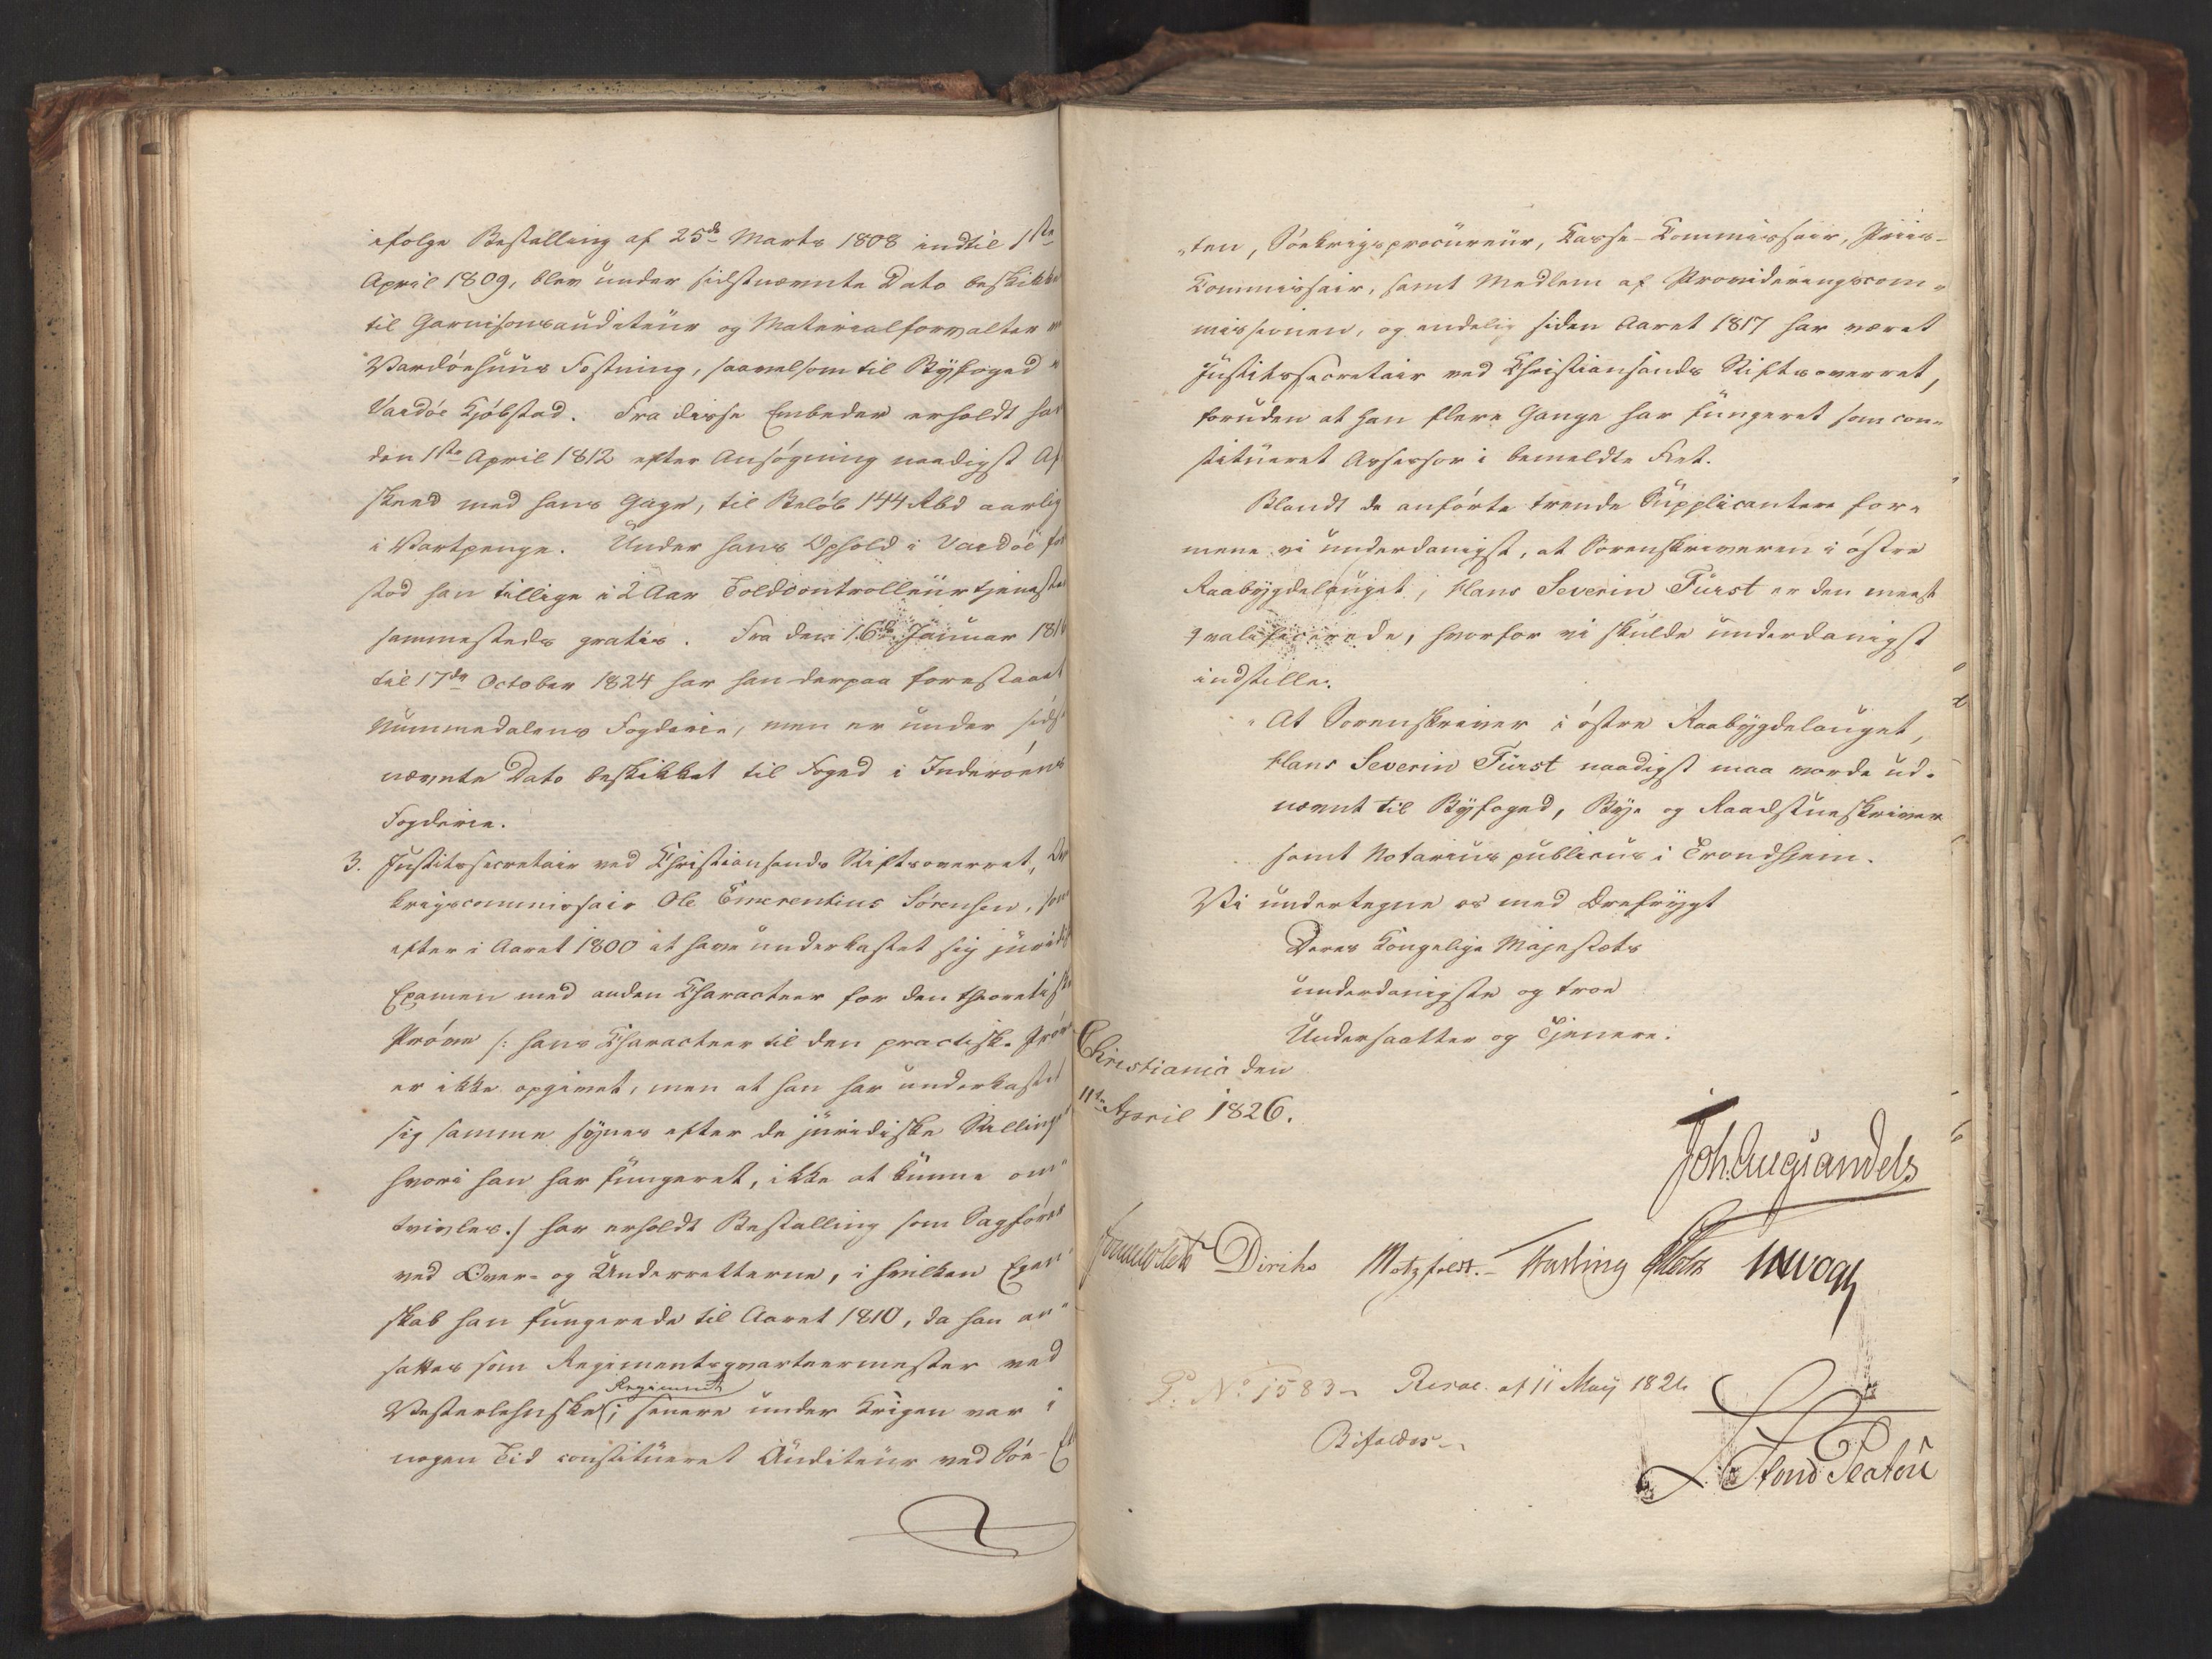 ifølge Bestalling af 25de Marts 1808 indtil 1ste
April 1809, blev under sidstnævnte Dato beskikket
til Garnisonsauditeur og Materialforvalter
Vardöehuus Fæstning, saavelsom til Byfoged
Vardöe Kjöbstad. Fra disse Embeder erholdt han
den 1ste April 1812 efter Ansögning naadigst Af
skeed med hans Gage, til Belöb 144 Rbd aarlig
i Vartpenge. Under hans Ophold i Vardöe for
stod han tillige i 2 Aar Toldcontrolleurtjenesten
sammesteds gratis. Fra den 16de Januar 1816
til 17de October 1824 har han derpaa forestaaet
Nummedalens Fogderie, men er under sidst
nævnte Dato beskikket til Foged i Inderöens
Fogderie.
3. Justitssecretair ved Christiansands Stiftsoverret,
krigscommissair Ole Emerentius Sörensen, som
efter i Aaret 1800 at have underkastet sig juridisk
Examen med anden Characteer for den theoretiske
Pröve /: hans Characteer til den practiske Pröve
er ikke opgivet, men at han har underkastet
sig samme synes efter de juridiske Stillinger
hvori han har fungeret, ikke at kunne om
tvivles:/ har erholdt Bestalling som Sagförer
ved Over- og Underretterne, i hvilken Egen
skab han fungerede til Aaret 1810, da han an
sattes som Regimentsqvarteermester ved
Regiment
Vesterlehnske; senere under Krigen var i
nogen Tid constitueret Auditeur ved Söe-Et
ten, Söekrigsprocureur, Casse-Kommissair, Priis-
Kommissair, samt Medlem af Provideringscom-
missionen, og endelig siden Aaret 1817 har været
Justitssecretair ved Christiansands Stiftsoverret,
foruden at han flere Gange har fungeret som con-
stitueret Assessor i bemeldte Ret.
Blandt de anförte trende Supplicantere for-
mene vi underdanigst, at Sorenskriveren i östre
Raabygdelauget, Hans Severin Fürst er den meest
qvalificerede, hvorfor vi skulde underdanigst
indstille:
"At Sorenskriver i östre Raabygdelauget,
Hans Severin Fürst naadigst maa vorde ud-
nævnt til Byfoged, Bye og Raadstueskriver
samt Notarius publicus i Trondhjem.
Vi undertegne os med Ærefrygt
Deres Kongelige Majestæts
underdanigste og troe
Undersaatter og Tjenere.
Christiania den
11te April 1826.
Joh. Aug. Sandels
Sommerhielm Diriks Motzfeldt. Fasting JHVogt
P. No 1583 Resol. af 11 May 1826
Bifaldes